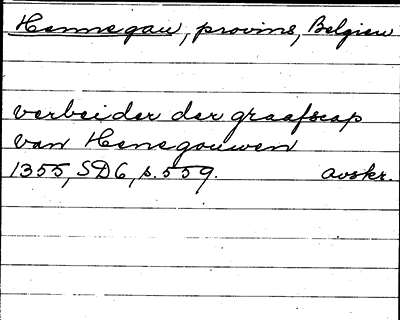 Hennegau, provins, Belgien
verbeider der graafscap
van Henegouwen
1355, SD6, s. 559. avskr.